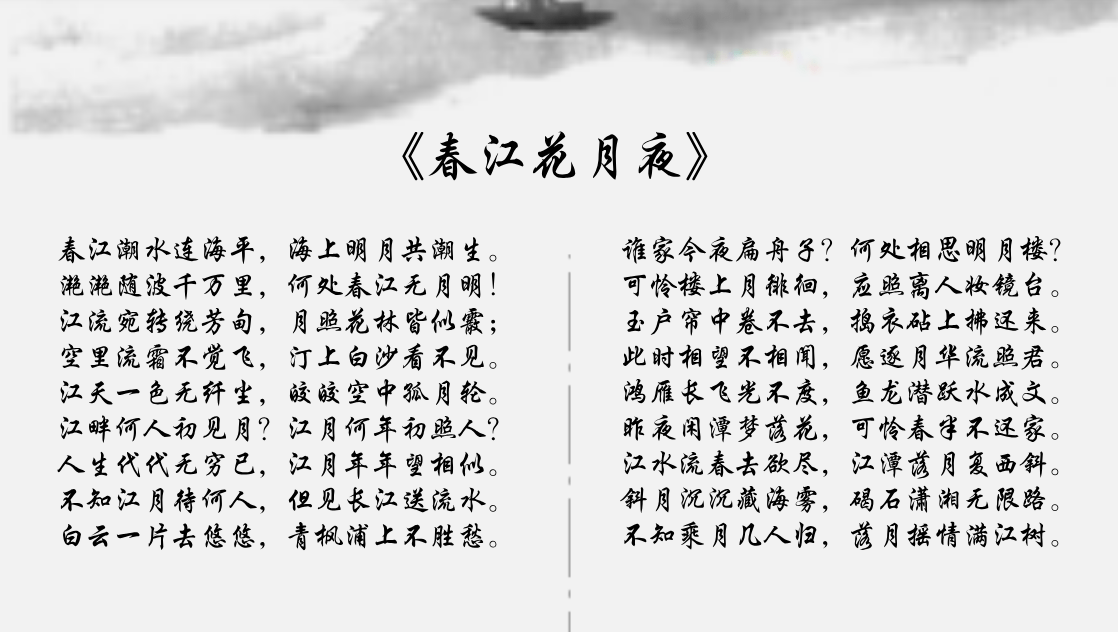 《春江花月夜》
春江潮水连海平，海上明月共潮生。
滟滟随波千万里，何处春江无月明！
江流宛转绕芳甸，月照花林皆似霰；
空里流霜不觉飞，汀上白沙看不见。
江天一色无纤尘，皎皎空中孤月轮。
江畔何人初见月？江月何年初照人？
人生代代无穷已，江月年年望相似。
不知江月待何人，但见长江送流水。
白云一片去悠悠，青枫浦上不胜愁。
谁家今夜扁舟子？何处相思明月楼？
可怜楼上月徘徊，应照离人妆镜台。
玉户帘中卷不去，捣衣砧上拂还来。
此时相望不相闻，愿逐月华流照君。
鸿雁长飞光不度，鱼龙潜跃水成文。
昨夜闲潭梦落花，可怜春半不还家。
江水流春去欲尽，江潭落月复西斜。
斜月沉沉藏海雾，碣石潇湘无限路。
不知乘月几人归，落月摇情满江树。